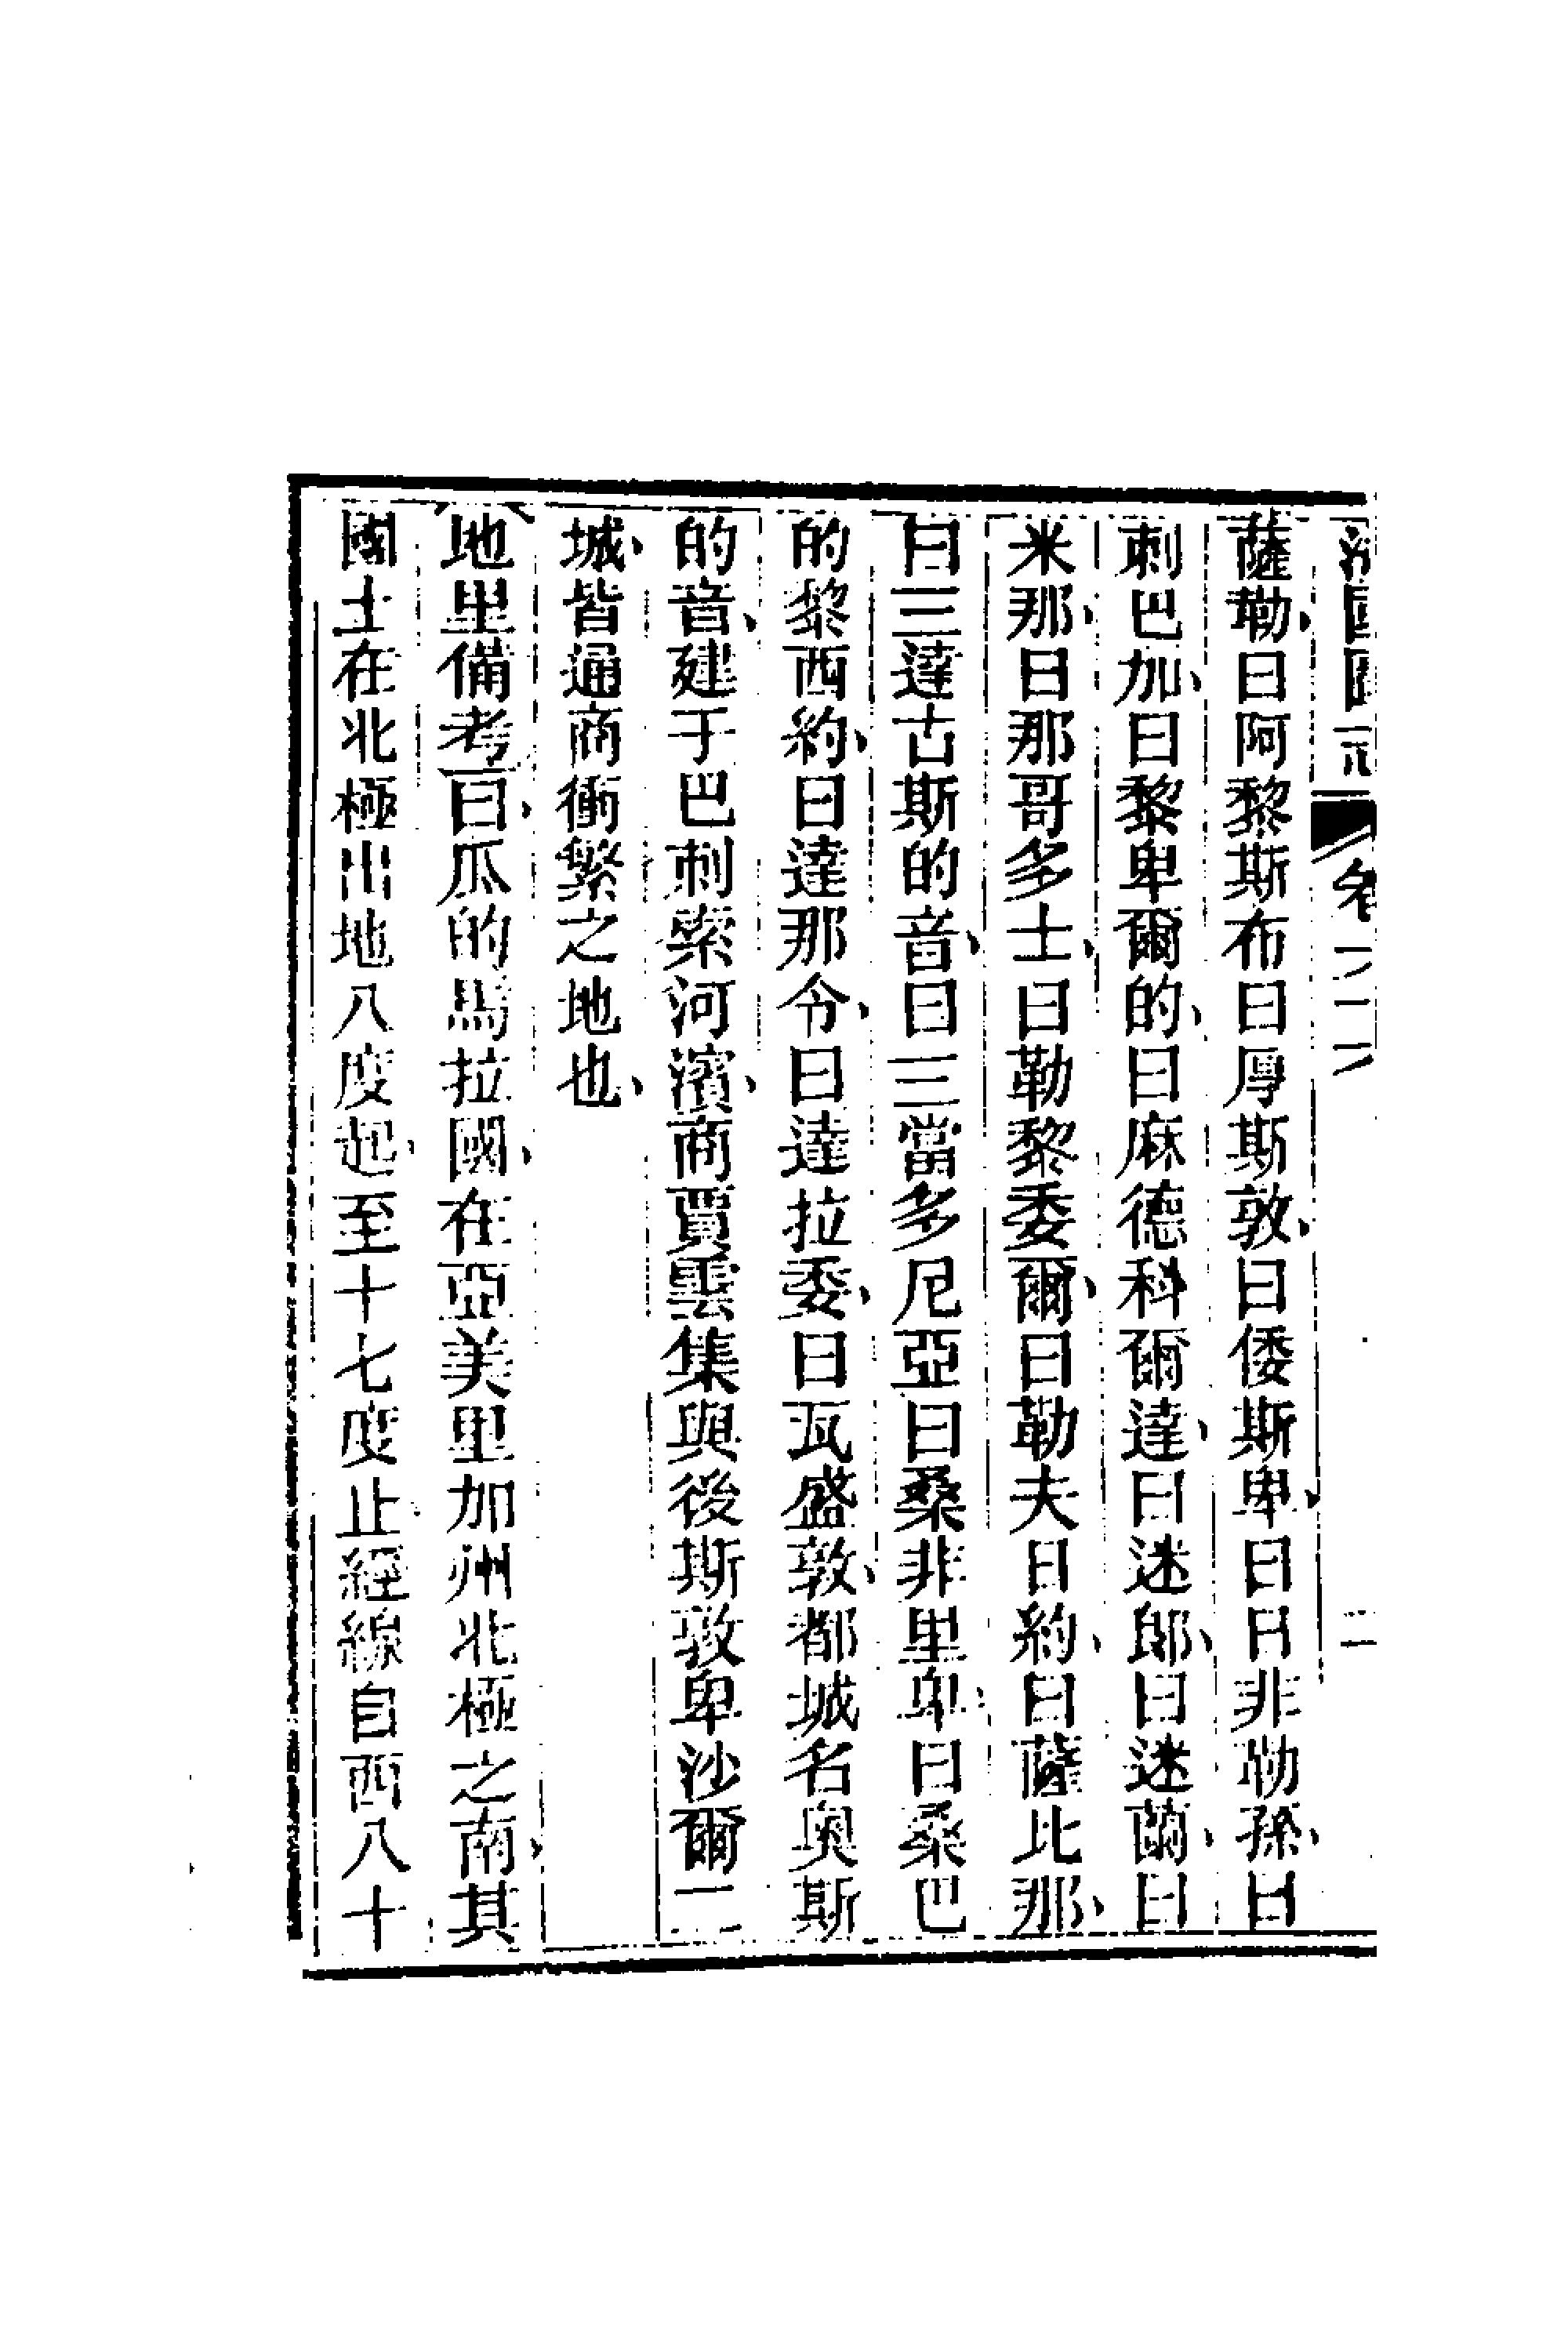 薩勒、曰阿黎斯布曰厚斯敦、曰倭斯卑、曰曰非勒孫、曰
刺巴加、曰黎卑爾的、曰麻德科爾達、曰迷郎、曰迷蘭、曰
米那、曰那哥多士、曰勒黎委爾、曰勒夫曰約、曰薩比那、
曰三達古斯的音、曰三當多尼亞曰桑非里卑、曰桑巴
的黎西約、曰達那令、曰達拉委、曰瓦盛敦、都城名奥斯
的音、建于巴刺索河濱、商賈雲集與後斯敦卑沙爾二
城、皆通商衝繁之地也、
地里備考曰、瓜的馬拉國、在亞美里加州北極之南、其
國土在北極出地八度起、至十七度止經線自西八十